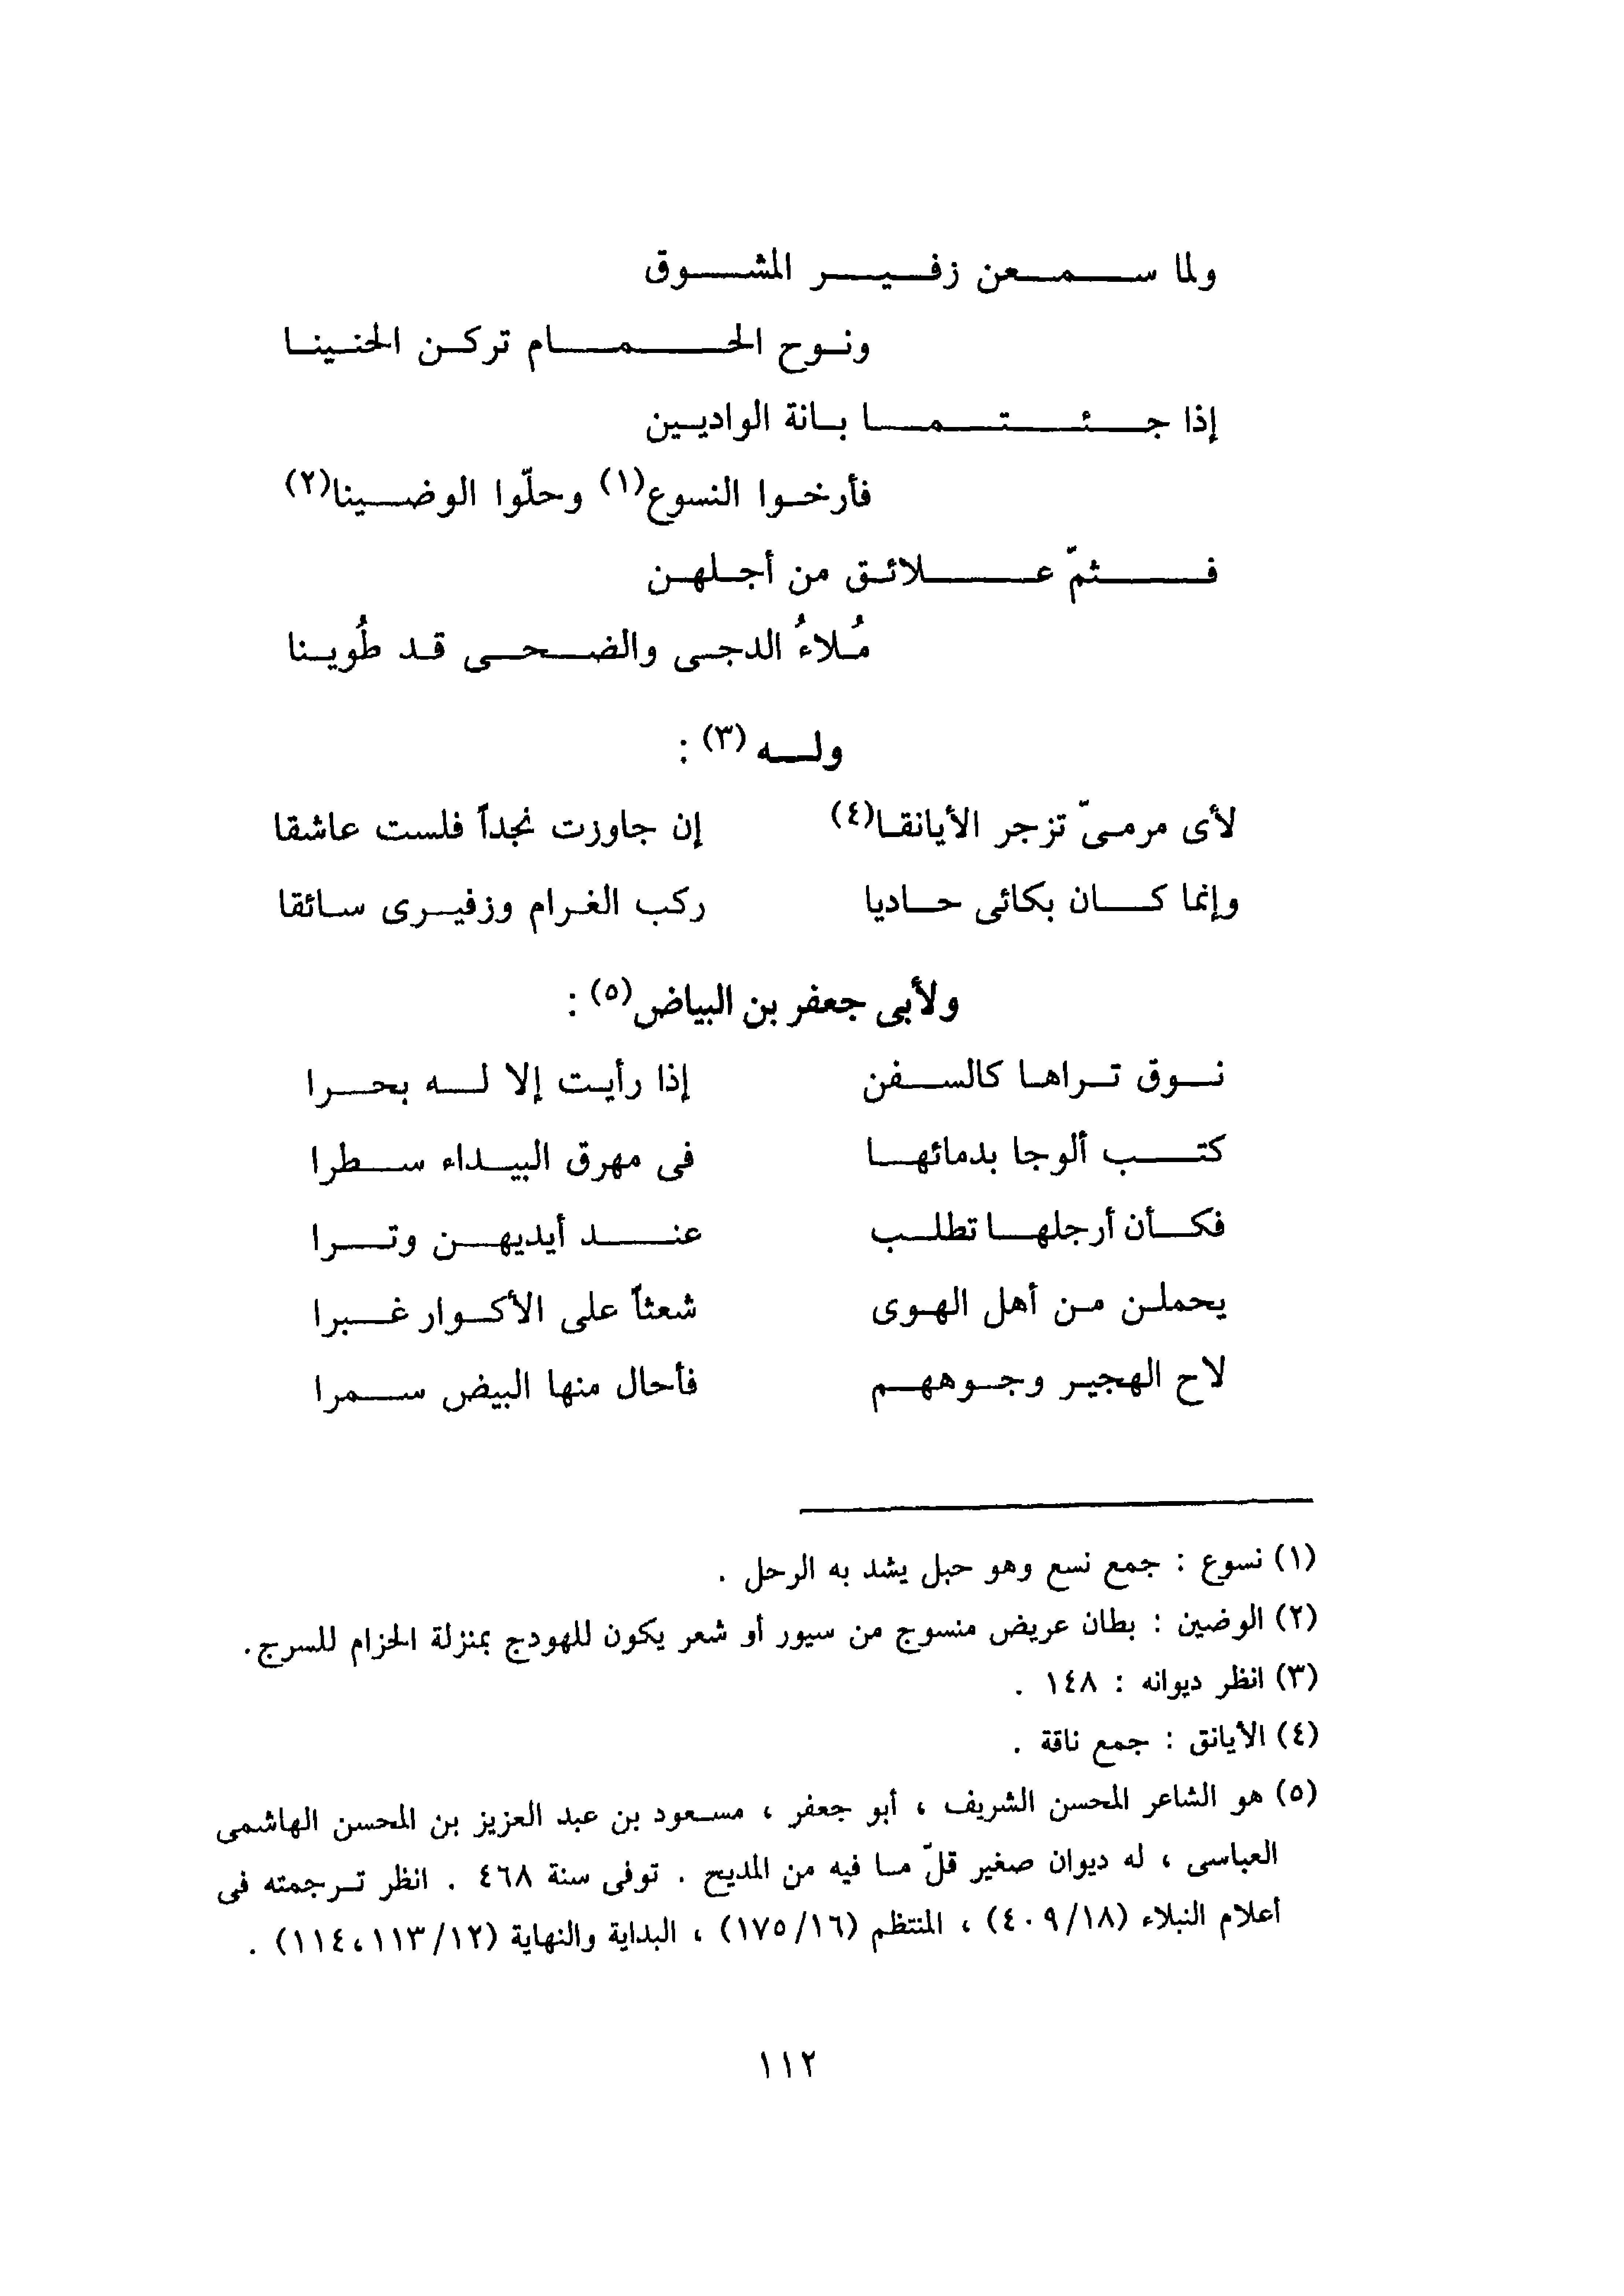 ولما سمعن زفير المشوق
ونوح الحمام تركن الحنينا
إذا جئتما بانة الواديين
فأرخوا النسوع(١) وحلّوا الوضينا(٢)
فثمّ علائق من أجلهن
مُلاءُ الدجى والضحى قد طُوينا
وله (٣) :
لأى مرمىّ تزجر الأيانقا(٤) إن جاوزت نجداً فلست عاشقا
وإنما كان بكائى حاديا ركب الغرام وزفيرى سائقا
ولأبى جعفر بن البياض(٥) :
نوق تراها كالسفن إذا رأيت إلا له بحرا
كتب ألوجا بدمائها فى مهرق البيداء سطرا
فكأن أرجلها تطلب عند أيديهن وترا
يحملن من أهل الهوى شعثاً على الأكوار غبرا
لاح الهجير وجوههم فأحال منها البيض سمرا
(١) نسوع : جمع نسع وهو حبل يشد به الرحل .
(٢) الوضين : بطان عريض منسوج من سيور أو شعر يكون للهودج بمنزلة الحزام للسرج.
(٣) انظر ديوانه : ١٤٨ .
(٤) الأيانق : جمع ناقة .
(٥) هو الشاعر المحسن الشريف ، أبو جعفر ، مسعود بن عبد العزيز بن المحسن الهاشمى
العباسى ، له ديوان صغير قلّ ما فيه من المديح . توفى سنة ٤٦٨ . انظر ترجمته فى
أعلام النبلاء (٤٠٩/١٨) ، المنتظم (١٧٥/١٦) ، البداية والنهاية (١١٤،١١٣/١٢) .
١١٢